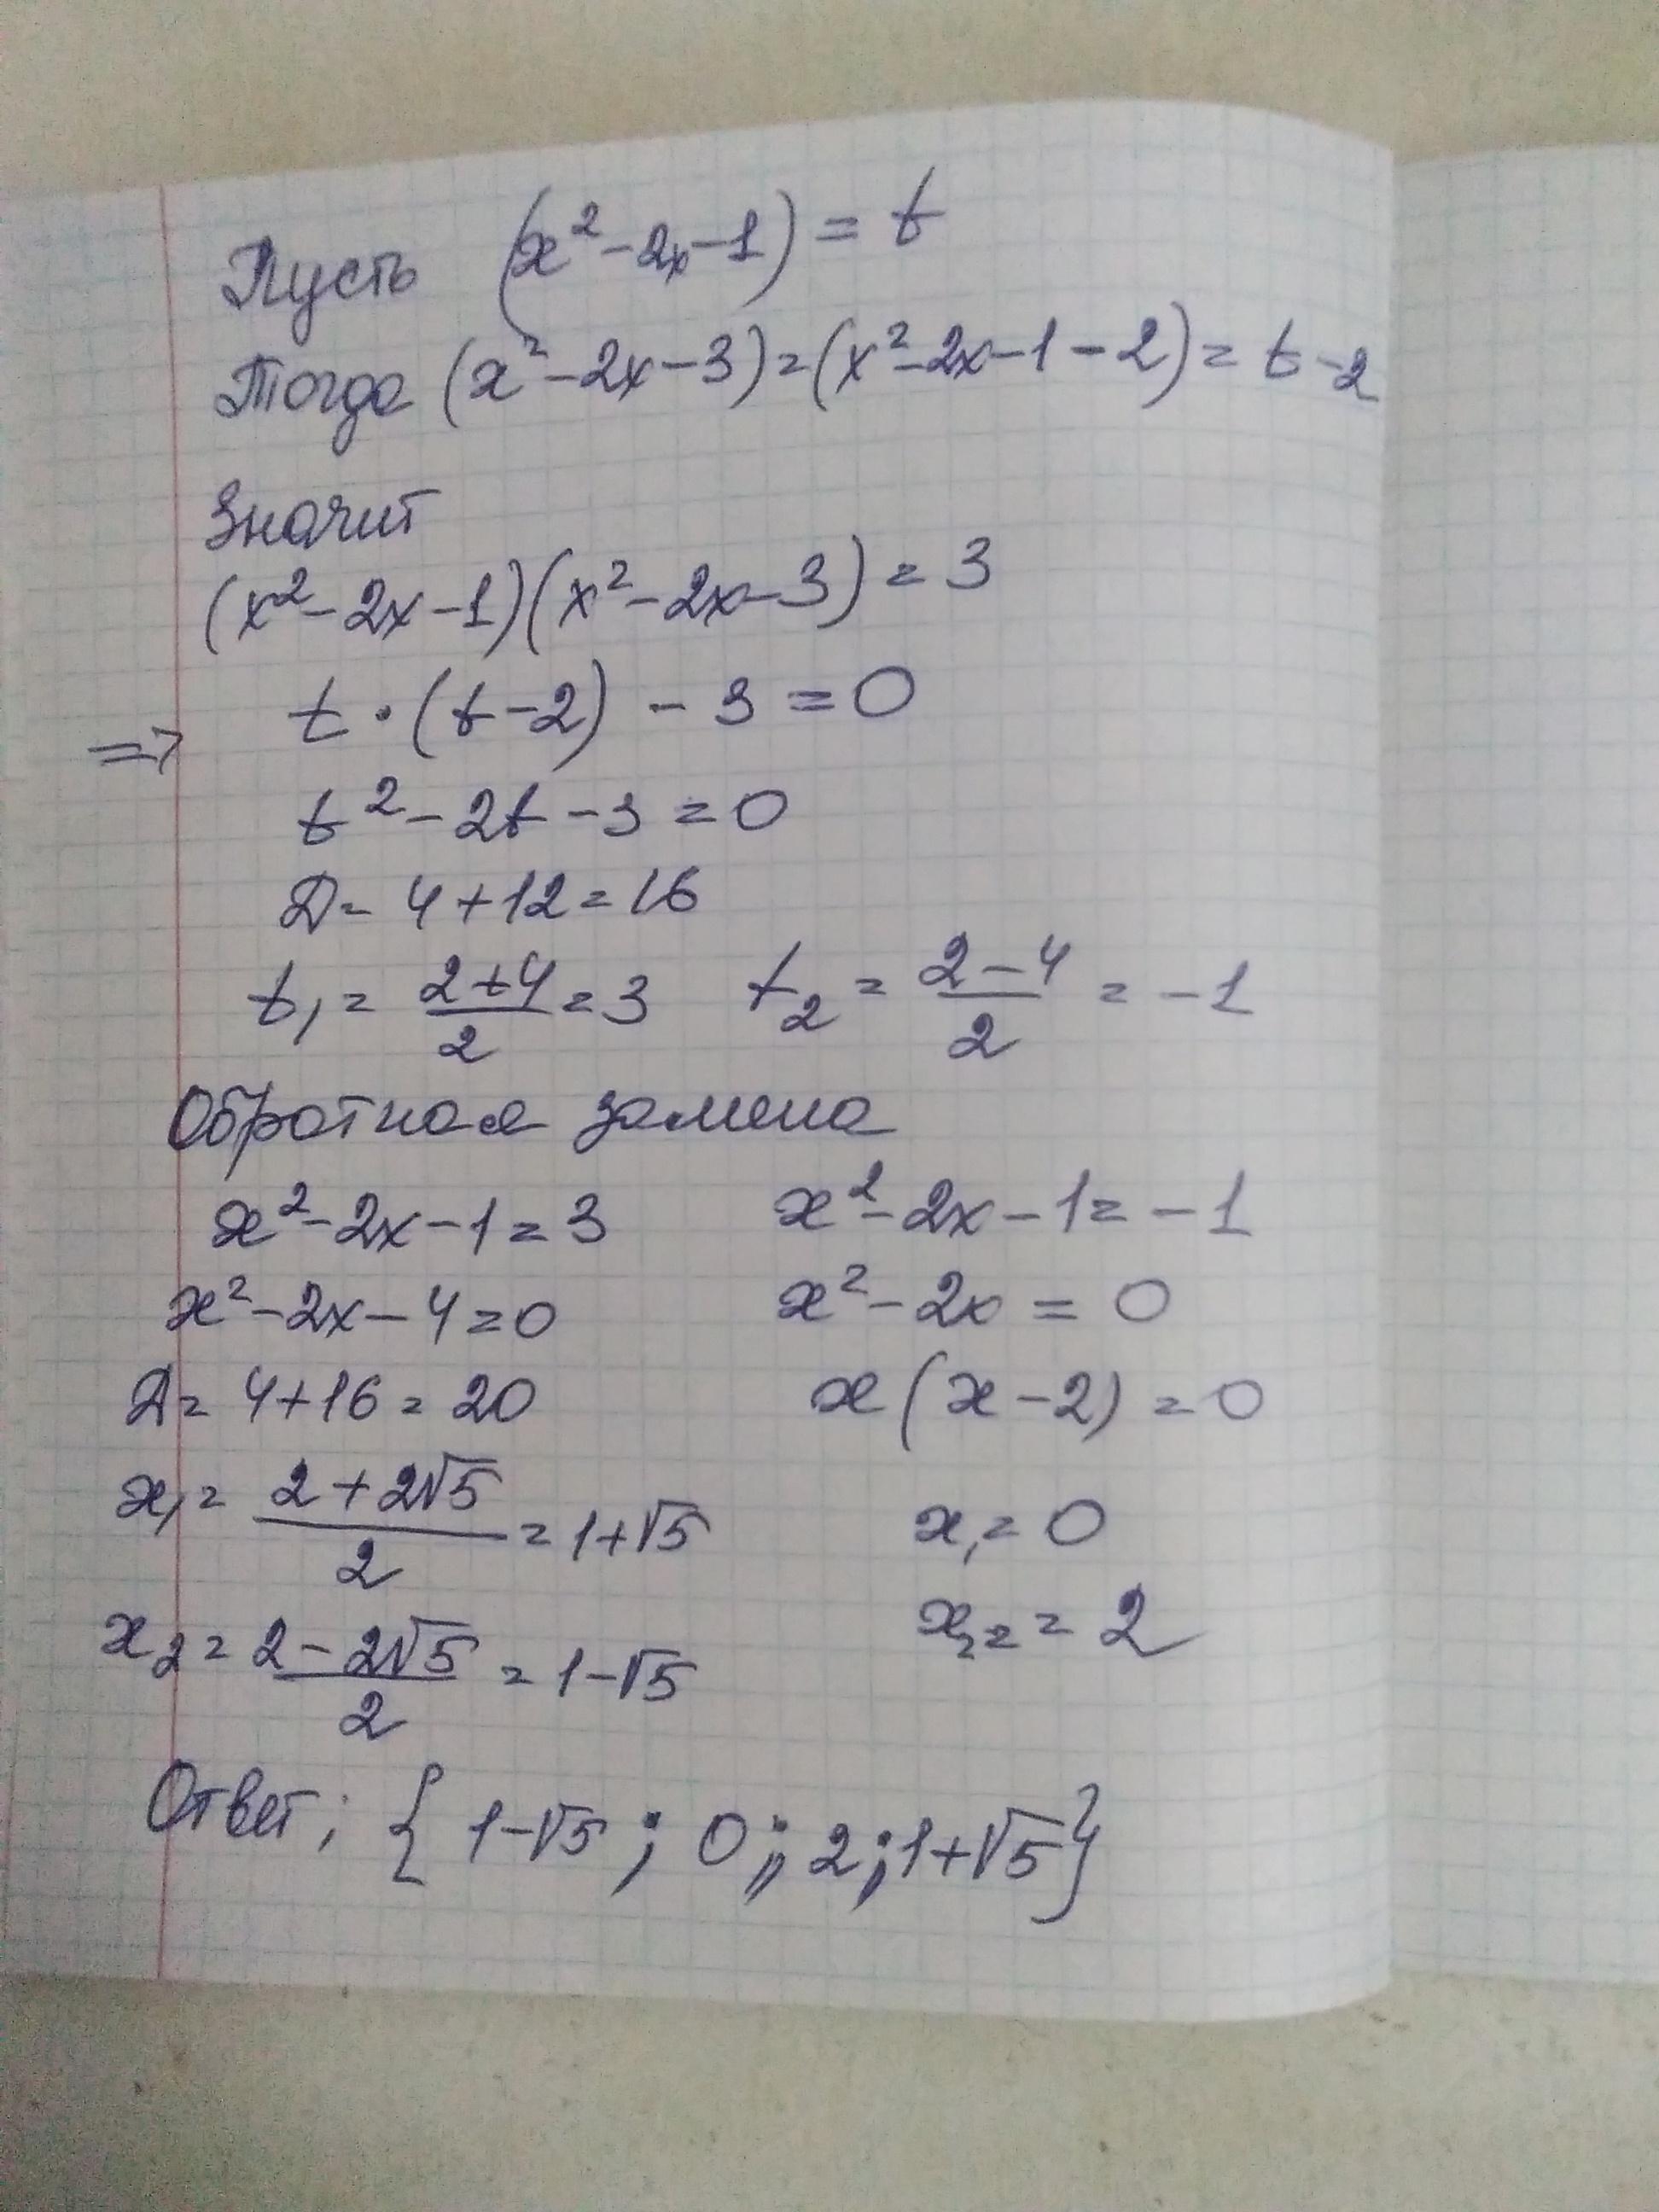 Пусть (x² - 2x - 1) = t
Тогда (x² - 2x - 3) = (x² - 2x - 1 - 2) = t - 2
Значит
(x² - 2x - 1)(x² - 2x - 3) = 3
=> t · (t - 2) - 3 = 0
t² - 2t - 3 = 0
D = 4 + 12 = 16
t₁ = (2+4)/2 = 3 t₂ = (2-4)/2 = -1
Обратная замена
x² - 2x - 1 = 3 x² - 2x - 1 = -1
x² - 2x - 4 = 0 x² - 2x = 0
D = 4 + 16 = 20 x(x - 2) = 0
x₁ = (2 + 2√5)/2 = 1 + √5 x₁ = 0
x₂ = (2 - 2√5)/2 = 1 - √5 x₂ = = 2
Ответ; { 1-√5 ; 0 ; 2 ; 1+√5 }